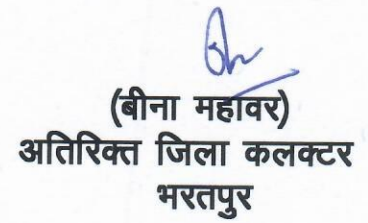 (बीना महावर)
अतिरिक्त जिला कलक्टर
भरतपुर